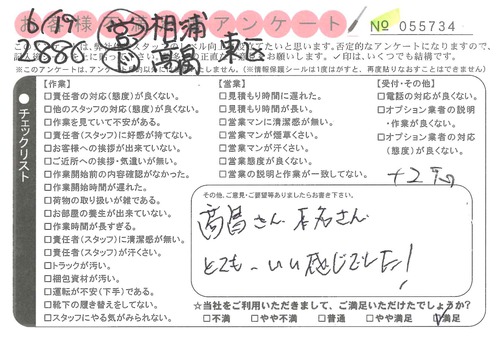 お客様 アンケート
6/19 ㊢ 相浦
886 髙畠 東区
No 055734
✓印は、いくつでも結構です。
※このアンケートは、 (※情報保護シールは1度はがすと、再度貼りなおすことはできません)
チェックリスト
【作業】
□責任者の対応(態度)が良くない。
□他のスタッフの対応(態度)が良くない。
□作業を見ていて不安がある。
□責任者(スタッフ)に好感が持てない。
□お客様への挨拶が出来ていない。
□ご近所への挨拶・気遣いが無い。
□作業開始前の内容確認がなかった。
□作業開始時間が遅れた。
□荷物の取り扱いが雑である。
□お部屋の養生が出来ていない。
□作業時間が長すぎる。
□責任者(スタッフ)に清潔感が無い。
□責任者(スタッフ)が汗くさい。
□トラックが汚い。
□梱包資材が汚い。
□運転が不安(下手)である。
□靴下の履き替えをしてない。
□スタッフにやる気がみられない。
【営業】
□見積もり時間に遅れた。
□見積もり時間が長い。
□営業マンに清潔感が無い。
□営業マンが煙草くさい。
□営業マンが汗くさい。
□営業態度が良くない。
□営業の説明と作業が一致してない。
【受付・その他】
□電話の対応が良くない。
□オプション業者の説明
・作業が良くない。
□オプション業者の対応
(態度)が良くない。
その他、ご意見・ご要望等ありましたらお書き下さい。
髙畠さん 石名さん
とても、いい感じでした!
☆当社をご利用いただきまして、ご満足いただけたでしょうか?
□不満 □やや不満 □普通 □やや満足 ☑満足